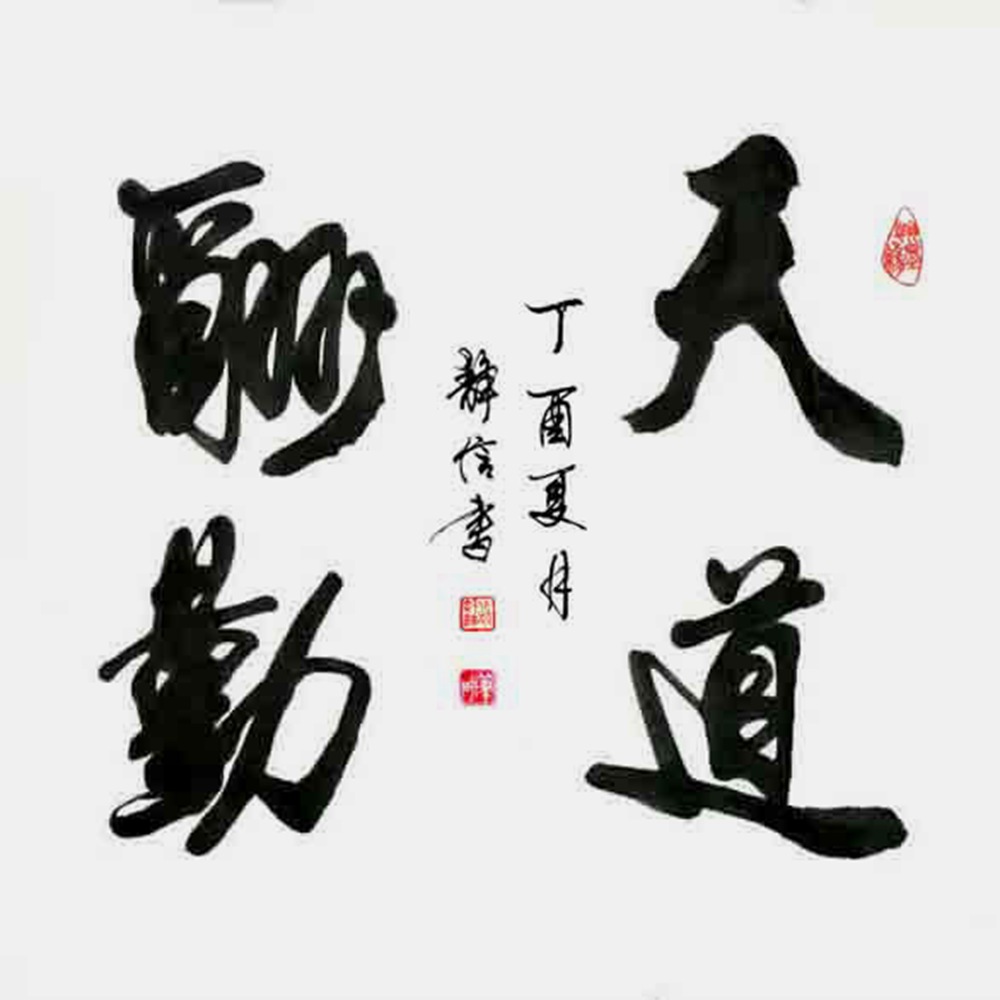 天道
酬勤
丁酉夏月
静信書